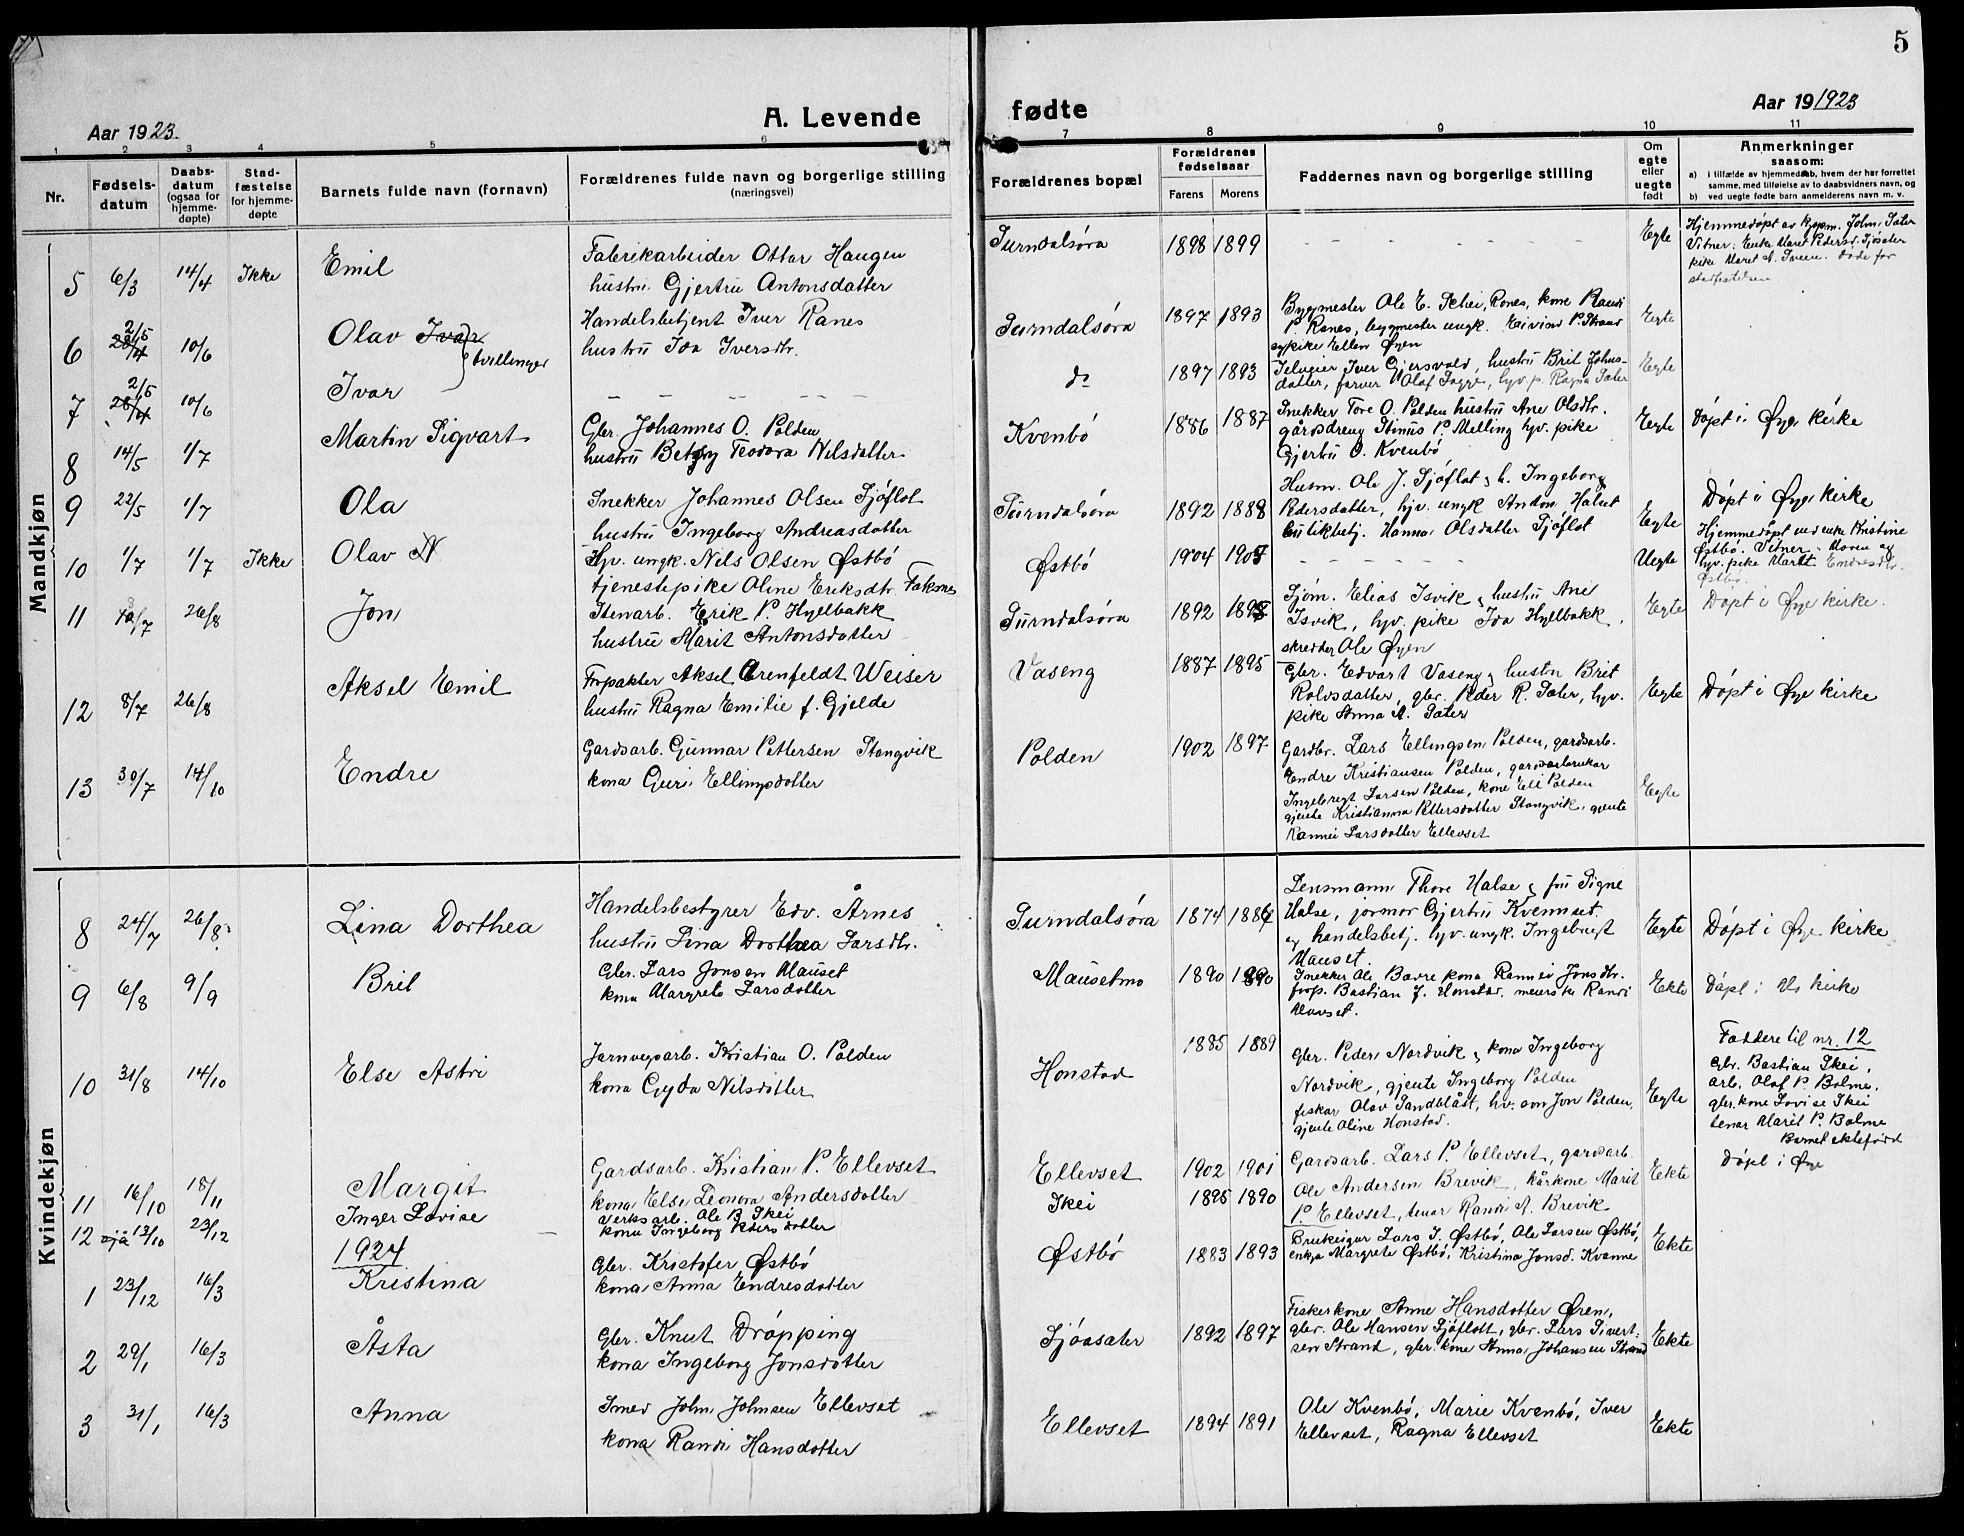 5
Aar 1923.
A. Levende
fødte
Aar 19 1923
1 2 3 4 5 6 7 8 9 10 11
Nr.
Fødsels-
datum
Daabs-
datum
(ogsaa for
hjemme-
døpte)
Stad-
fæstelse
for hjemme-
døpte
Barnets fulde navn (fornavn)
Forældrenes fulde navn og borgerlige stilling
(næringsvei)
Forældrenes bopæl
Forældrenes
fødselsaar
Farens Morens
Faddernes navn og borgerlige stilling
Om
egte
eller
uegte
født
Anmerkninger
saasom:
a) i tilfælde av hjemmedaab, hvem der har forrettet
samme, med tilføielse av to daabsvidners navn, og
b) ved uegte fødte barn anmelderens navn m. v.
Mandkjøn
5 6/3 14/4 Ikke Emil
Fabrikarbeider Ottar Haugen
hustru Gjertru Antonsdatter
Surndalsøra 1898 1899
Egte
Hjemmedøpt av John Sæter
Vitner: Enke Maret Pedersd. Sjøsæter
pike Maret A. Sveen. Døde før
stadfestelsen
6 2/5 28/4 10/6 Olav Ivar
tvillinger
Handelsbetjent Iver Ranes
hustru Ida Iversdtr.
Surndalsøra 1897 1893
Bygmester Ole E. Skei, Ranes, kone Randi
P. Ranes, bygmester ungk. Eivind P. Strand
sypike Ellen Øyen
Egte
7 2/5 28/4 10/6 Ivar
do 1897 1893
Selveier Iver Gjersvold, hustru Brit Johns-
datter, farver Olaf Sagge, hjv. p. Ragna Sæter
Egte
8 14/5 1/7 Martin Sigvart
Gbr. Johannes O. Polden
hustru Betsy Teodora Nilsdatter
Kvenbø 1886 1887
Snekker Tore O. Polden hustru Ane Olsdtr.
gårdsdreng Stinus P. Melling hjv. pike
Gjertru O. Kvenbø
Egte
Døpt i Øye kirke
9 22/5 1/7 Ola
Snekker Johannes Olsen Sjøflot
hustru Ingeborg Andreasdatter
Surndalsøra 1892 1888
Husm. Ole J. Sjøflot og h. Ingeborg
Pedersdatter, hjv. ungk. Anton Halset
butikkbetj. Hanna Olsdatter Sjøflot
Egte
Døpt i Øye kirke
10 1/7 1/7 Ikke Olav N
Hjv. ungk. Nils Olsen Østbø
tjenestepike Oline Eriksdtr. Faksnes
Østbø 1904 1905
Uegte
Hjemmedøpt ved enke Kristine
Østbø. Vitner: Moren og
hjv. pike Marit Endresdtr.
Østbø.
11 8/7 26/8 Jon
Stenarb. Erik P. Hyllbakk
hustru Marit Antonsdatter
Surndalsøra 1892 1898
Sjøm. Elias Isvik og hustru Ane
Isvik, hjv. pike Ida Hyllbakk,
skredder Ole Øyen
Egte
Døpt i Øye kirke.
12 8/7 26/8 Aksel Emil
Forpakter Aksel Arenfeldt Weiser
hustru Ragna Emilie f. Gjelde
Vaseng 1887 1895
Gbr. Edvart Vaseng og hustru Brit
Rolvsdatter, gbr. Peder R. Sæter, hjv.
pike Anna A. Sæter
Egte
Døpt i Øye kirke
13 30/7 14/10 Endre
Gardsarb. Gunnar Pettersen Stangvik
kona Guri Ellingsdatter
Polden 1902 1897
Gardbr. Lars Ellingsen Polden, gardsarb.
Endre Kristiansen Polden, gardsarbeidar
Ingebregt Larsen Polden, kone Eli Polden
gjente Kristianna Pettersdatter Stangvik, gjente
Rannei Larsdatter Ellevset
Egte
Kvindekjøn
8 24/7 26/8 Lina Dorthea
Handelsbestyrer Edv. Årnes
hustru Lina Dorthea Larsdtr.
Surndalsøra 1874 1886
Lensmann Thore Halse og fru Signe
Halse, jormor Gjertru Kvennset.
og handelsbetj. hjv. ungk. Ingebregt
Mauset.
Egte
Døpt i Øye kirke
9 6/8 9/9 Brit
Gbr. Lars Jonsen Mauset
kona Margrete Larsdatter
Mausetmo 1890 1890
Snekker Ole Bævre kona Rannei Jonsdtr.
forp. Bastian J. Honstad, meierske Randi
Mauset.
Ekte
Døpt i Mo kirke
10 31/8 14/10 Else Astri
Jarnvegsarb. Kristian O. Polden
kona Gyda Nilsdatter
Honstad 1885 1889
Gbr. Peder Nordvik og kona Ingeborg
Nordvik, gjente Ingeborg Polden
fiskar Olav Sandblåst, hv. son Jon Polden,
gjente Oline Honstad.
Egte
Faddere til nr. 12
Gbr. Bastian Skei,
arb. Olaf P. Bolme.
gbr. kone Lovise Skei
tenar Marit P. Bolme
Barnet ektefødd
11 16/10 18/11 Margit
Gardsarb. Kristian P. Ellevset
kona Else Leonora Andersdatter
Ellevset 1902 1901
Gardsarb. Lars P. Ellevset, gardsarb.
Ole Andersen Brevik, kårkone Marit
P. Ellevset, tenar Randi A. Brevik
Ekte
Døpt i Øye
12 13/10 23/12 Inger Lovise
Verksarb. Ole B. Skei
kona Ingeborg Pedersdatter
Skei 1895 1890
1924
1 23/12 16/3 Kristina
Gbr. Kristofer Østbø
kona Anna Endresdatter
Østbø 1883 1893
Brukeigar Lars I. Østbø, Ole Larsen Østbø,
enkja Margrete Østbø, Kristina Jonsd. Kvanne
Ekte
2 29/1 16/3 Åsta
Gbr. Knut Drøpping
kona Ingeborg Jonsdatter
Sjøasæter 1892 1897
Fiskerkone Anne Hansdatter Øren,
gbr. Ole Hansen Sjøflott, gbr. Lars Sivert-
sen Strand, gbr. kone Anna Johansen Strand
Ekte
3 31/1 16/3 Anna
Smed John Johnsen Ellevset
kona Randi Hansdatter
Ellevset 1894 1891
Ole Kvenbø, Marie Kvenbø, Iver
Ellevset, Ragna Ellevset
Ekte